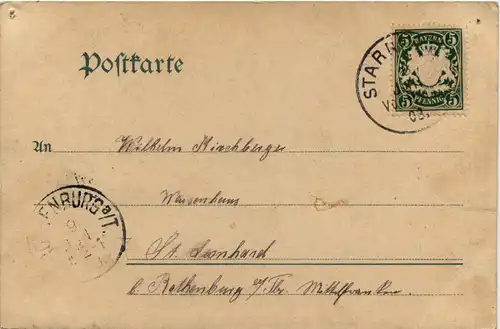 Postkarte
STARN
5 BAYERN 5
5 PFENNIG 5
03.
An
Wilhelm Kirchberger
Waisenhaus
ENBURG a/T.
St. Leonhard
b. Rothenburg o/Tbr. Mittelfranken